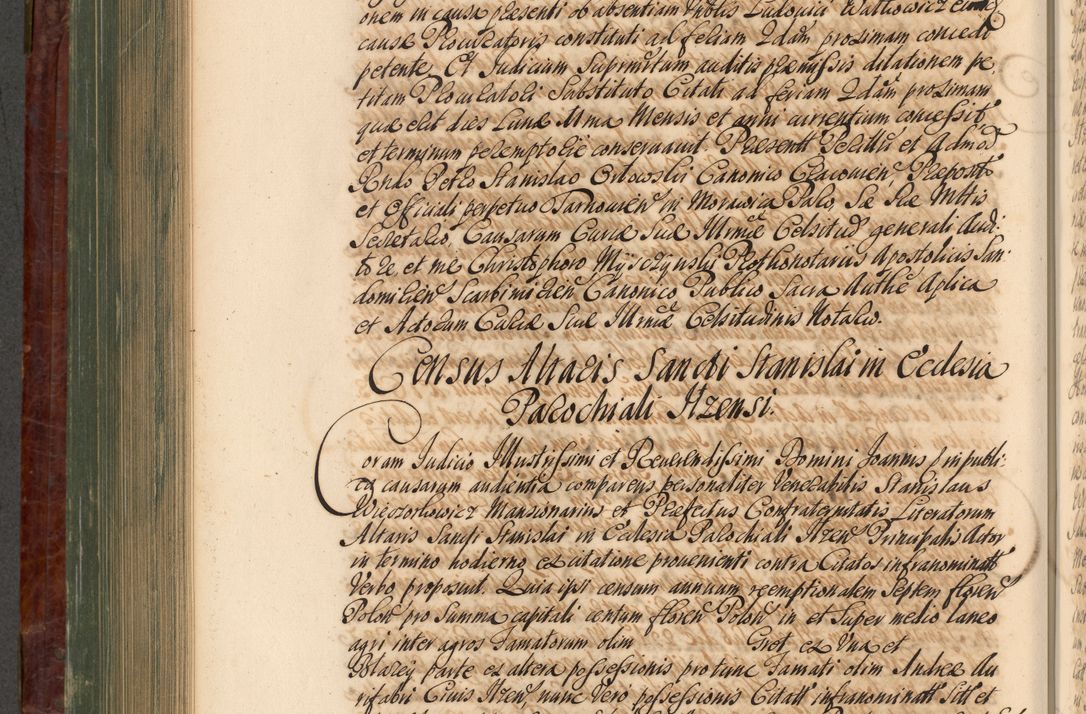 onem in causa præsenti ob absentiam Nobis Ludovici Watkowicz eiusd
causæ Procuratoris constituti ad feriam 2dam proximam concedi
petente. Et Judicium Suprmittum auditis præmissis dilationem pe,
titam Procuratori Substituto Citati ad feriam 2dam proximam
quæ erit dies Lunæ 11ma Mensis et anni currentium concessit
et terminum peremptorie conservavit. Præsentt Perilltri et Admod
Rndo Petro Stanislao Orlowski Canonico Cracovien, Præposto
et Officiali perpetuo Tarnovien, in Morawica Paro, Sæ Ræ Mttis
Secretario, Causarum Curiæ Suæ Illrmæ Celsitud generali Audi-
tore, et me Christophoro Myszczynski Prothonotariis Apostolicis San-
domirien Scarbimirien Canonico Publico Sacra Authe Aplica
et Actorum Curiæ Suæ Illrmæ Celsitudinis Notario.
Census Altaris Sancti Stanislai in Ecclesia
Parochiali Ilzensi.
Coram Judicio Illustrissimi et Reverendissimi Domini Joannis p in publi-
ca causarum audientia comparens personaliter Venerabilis Stanislaus
Wieczorkowicz Mansionarius et Præfectus Confraternitatis Literatorum
Altaris Sancti Stanislai in Ecclesia Parochiali Ilzen Principalis Actor
in termino hodierno ex citatione provenienti contra Citatos infranominatt
Verbo proposuit. Quia ipse censum annuum reemptionalem Septem floren
Polon pro Summa capitali centum floren Polon in et Super medio laneo
agri inter agros Famatorum olim Grot ex Una et
Blazey parte ex altera possessionis pro tunc Famati olim Andreæ Au
rifabri Civis Ilzen, nunc Vero possessionis Citatt infranominatt Sitt et